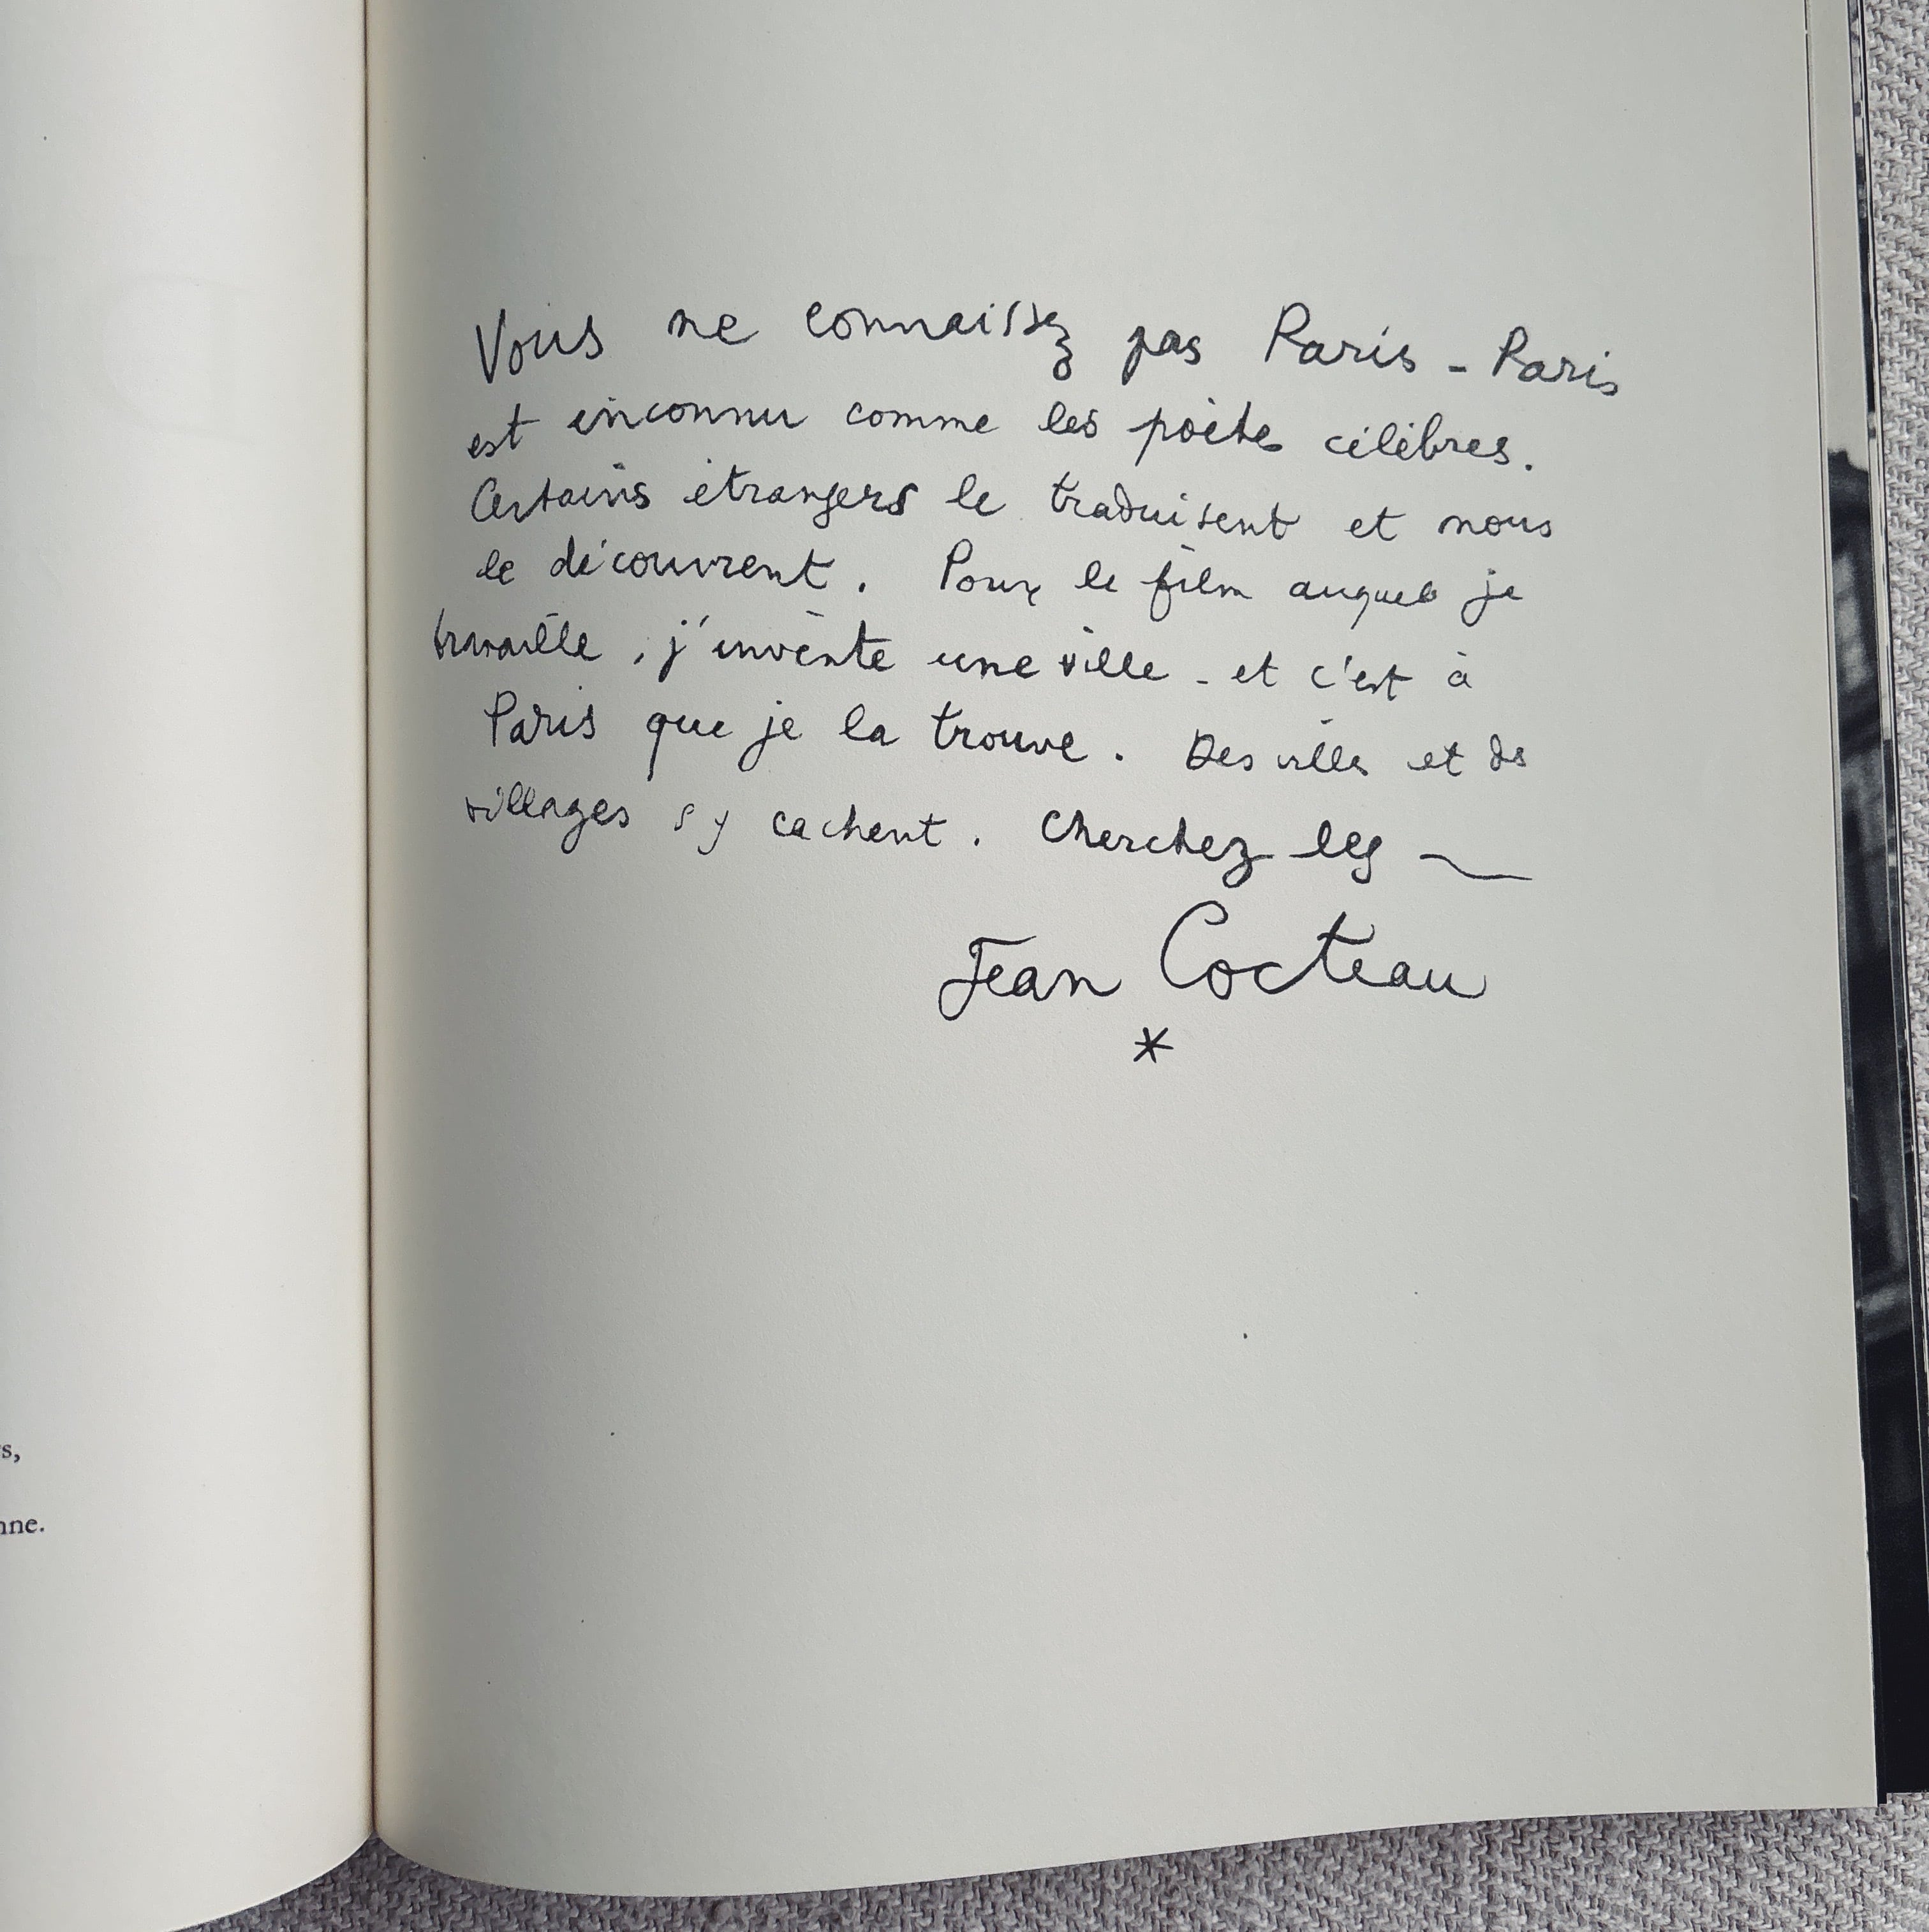 Vous ne connaissez pas Paris - Paris
est inconnu comme les poètes célèbres.
Certains étrangers le traduisent et nous
le découvrent. Pour le film auquel je
travaille, j'invente une ville - et c'est à
Paris que je la trouve. Des villes et des
villages s'y cachent. Cherchez les
Jean Cocteau
*
s,
nne.